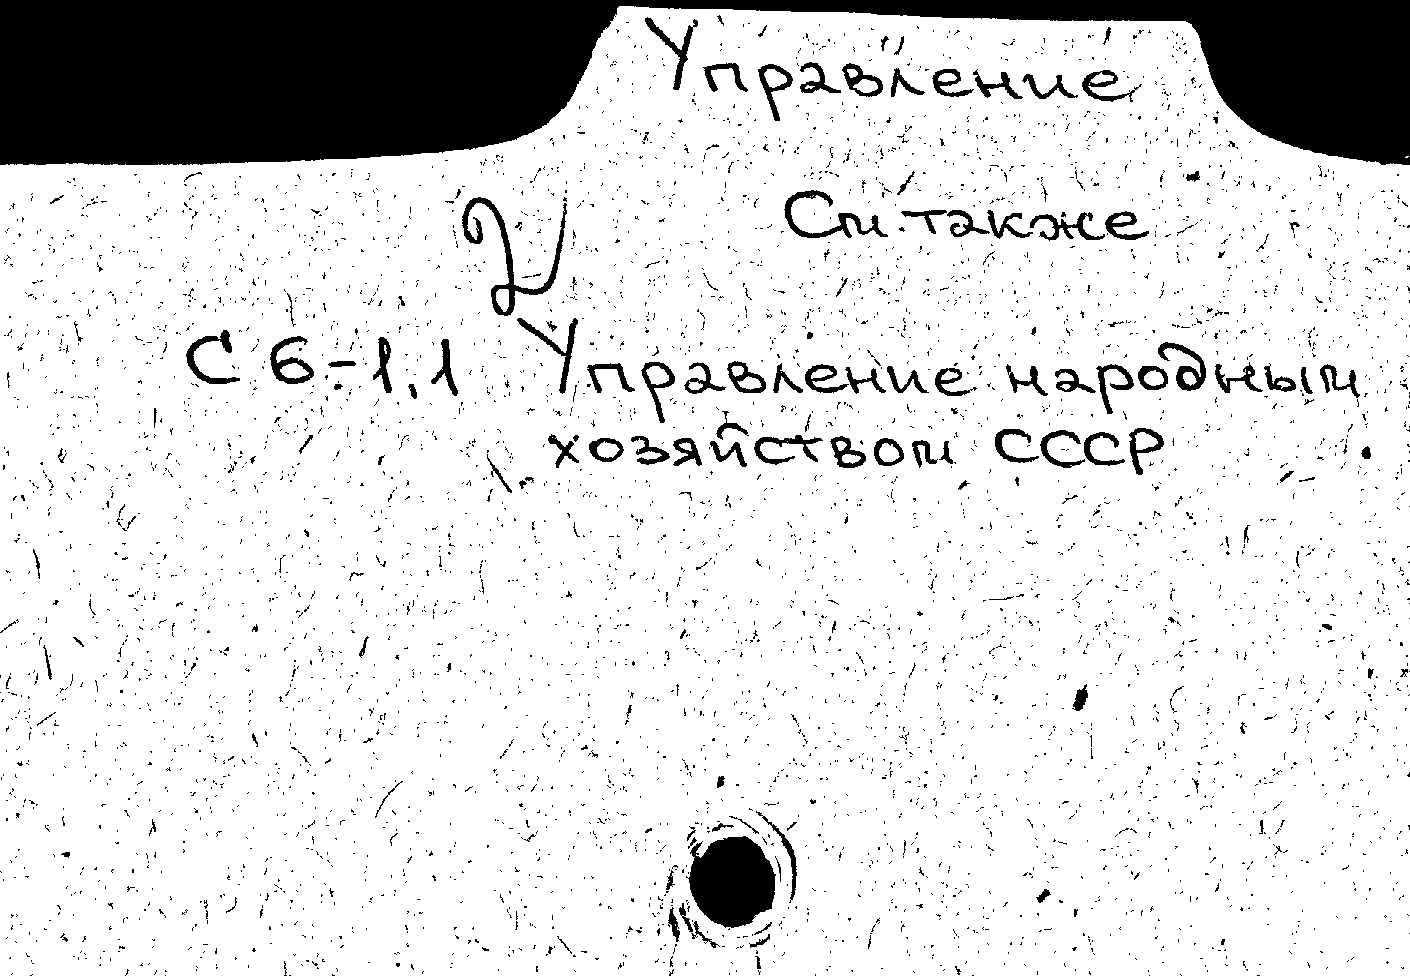 Управление
См. также
2
С 6-1,1 Управление народным
хозяйством СССР